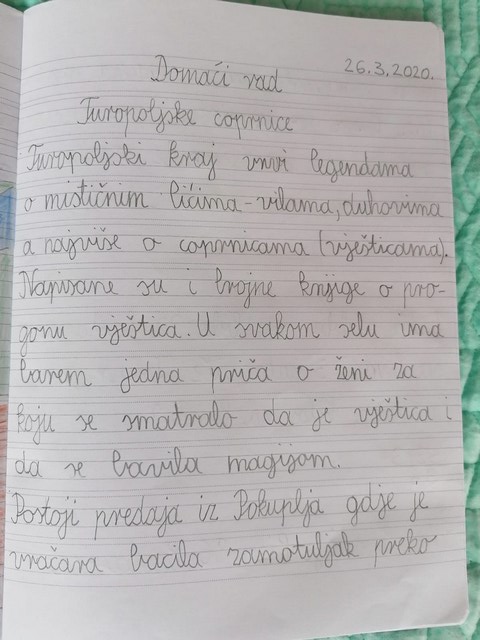 Domaći rad 26.3.2020.
Turopoljske coprnice
Turopoljski kraj vrvi legendama
o mističnim bićima-vilama, duhovima
a najviše o coprnicama (vješticama).
Napisane su i brojne knjige o pro-
gonu vještica. U svakom selu ima
barem jedna priča o ženi za
koju se smatralo da je vještica i
da se bavila magijom.
Postoji predaja iz Pokuplja gdje je
vračara bacila zamotuljak preko